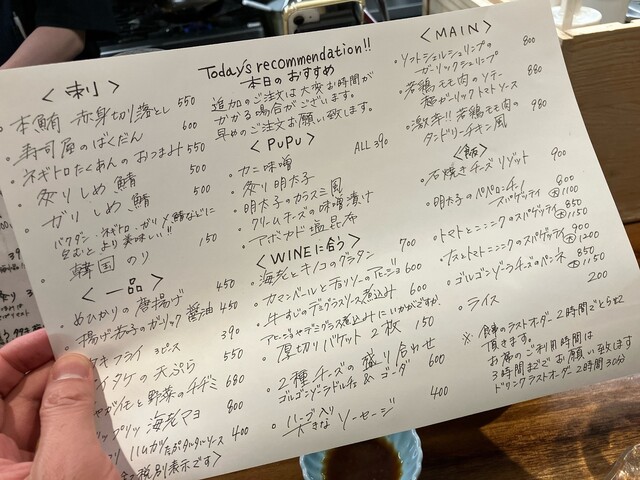 Today's recommendation!!
本日のおすすめ
追加のご注文は大変お時間が
かかる場合がございます。
早めのご注文お願い致します。
<刺し>
・本鮪 赤身切り落とし 550
・寿司屋のばくだん 600
・ネギトロたくあんのおつまみ 550
・炙りしめ鯖 500
・ガリしめ鯖 500
バクダン・ネギトロ・ガリ〆鯖などに
包むとより美味しい!!
・韓国のり 150
<一品>
めひかりの唐揚げ 450
揚げ茄子のガリック醤油 450
キフライ 3ピース 390
イタケの天ぷら 550
と野菜のチヂミ 680
ップリッ海老マヨ 800
ハムカツたっぷりタルタルソース 400
税別表示です>
<PuPu> ALL 390
・カニ味噌
・炙り明太子
・明太子のカラスミ風
・クリームチーズの味噌漬け
・アボカド塩昆布
<WINEに合う>
・海老とキノコのグラタン 700
・カマンベールとチョリソーのアヒージョ 600
・牛すじのデミグラスソース煮込み 600
アヒージョやデミグラス煮込みにいかがですか
厚切りバケット 2枚 150
・2種チーズの盛り合わせ 600
ゴルゴンゾーラドルチェ&ゴーダ
・ハーブ入り
大きなソーセージ 400
<MAIN>
・ソフトシェルシュリンプの
ガーリックシュリンプ 800
・若鶏モモ肉のソテー
極ガーリックトマトソース 880
・激辛!!若鶏モモ肉の
タンドリーチキン風 980
<飯>
・石焼きチーズリゾット 900
・明太子のペペロンチーノ
スパゲッティ 850 大1100
・トマトとニンニクのスパゲッティ 850 大1150
・ナスとトマトニンニクのスパゲッティ 900 大1200
・ゴルゴンゾーラチーズのペンネ 850 大1150
・ライス 200
※ 食事のラストオーダー 2時間でとらせて
頂きます。
お席のご利用時間は
3時間までで お願い致します
ドリンクラストオーダー 2時間30分